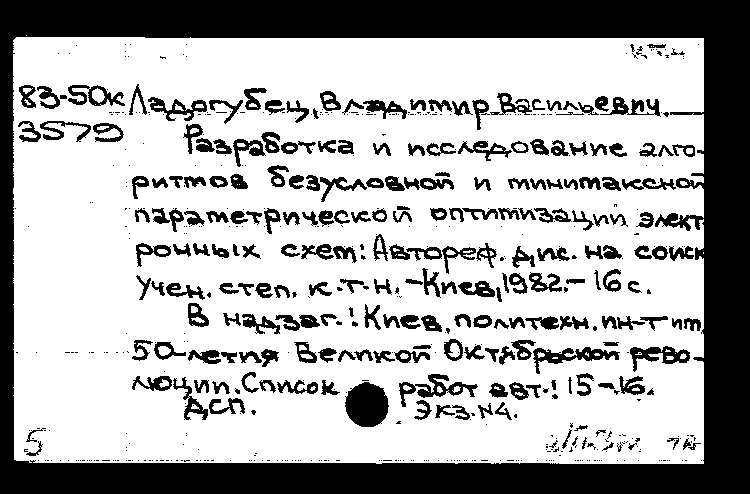 к.т.н
83-50к Ладогубец, Владимир Васильевич.
3579
Разработка и исследование алго-
ритмов безусловной и минимаксной
параметрической оптимизации элект
ронных схем: Автореф. дис. на соиск
учен. степ. к.т.н. -Киев, 1982.- 16 с.
В надзаг.: Киев. политехн. ин-т им.
50-летия Великой Октябрьской рево-
люции. Список работ авт.: 15-16.
ДСП. Экз. N4.
5